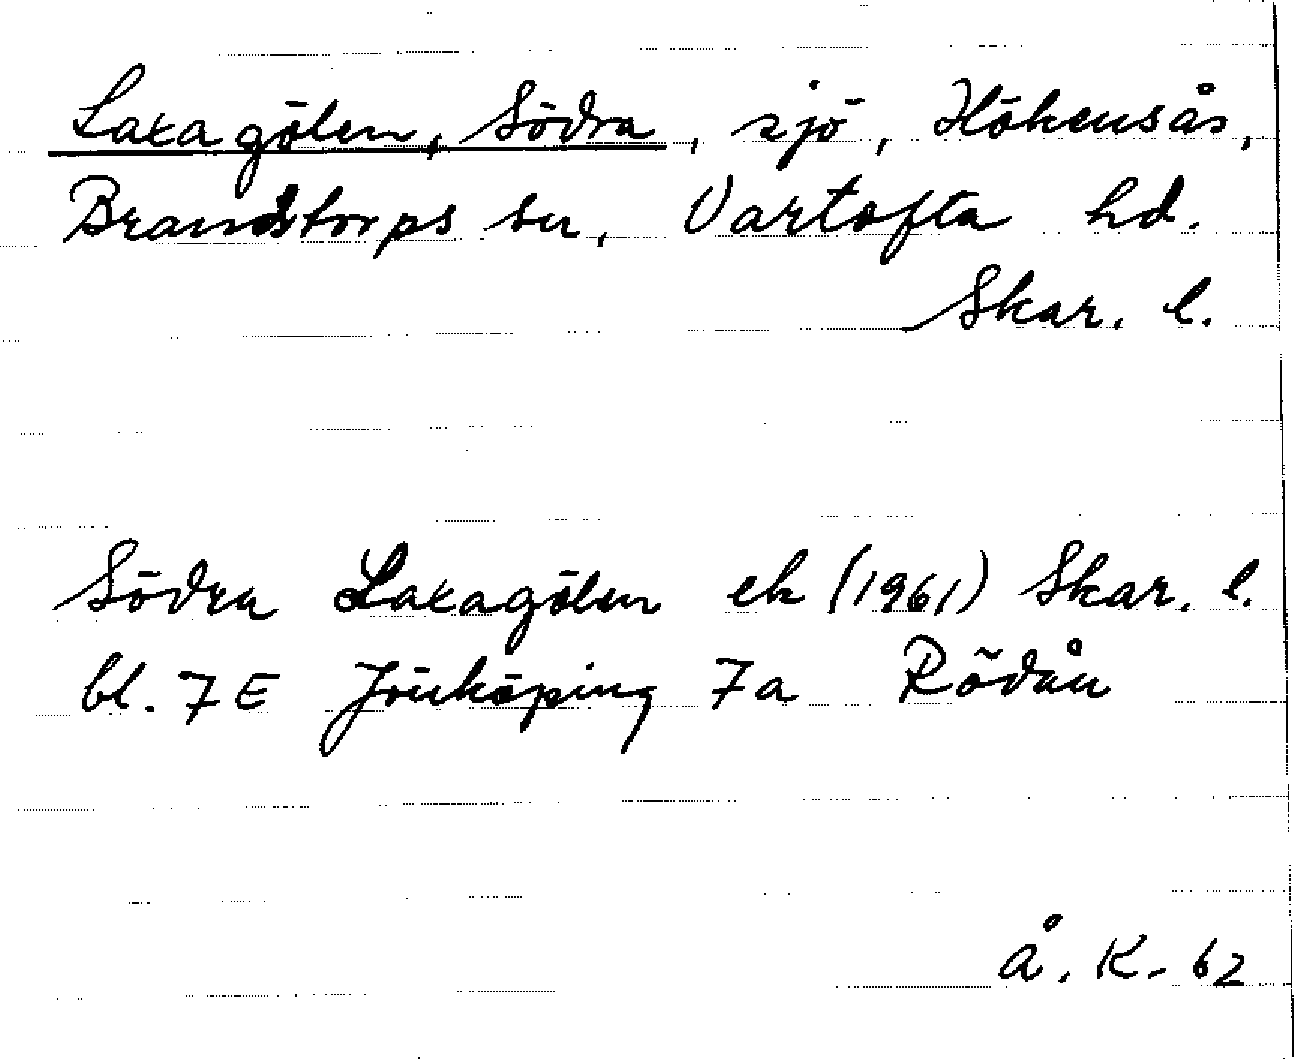 Laxagölen, Södra, sjö, Hökensås,
Brandstorps sn, Vartofta hd.
Skar. l.
Södra Laxagölen ek (1961) Skar. l.
bl. 7 E Jönköping 7a Rödån
Å. K. 62